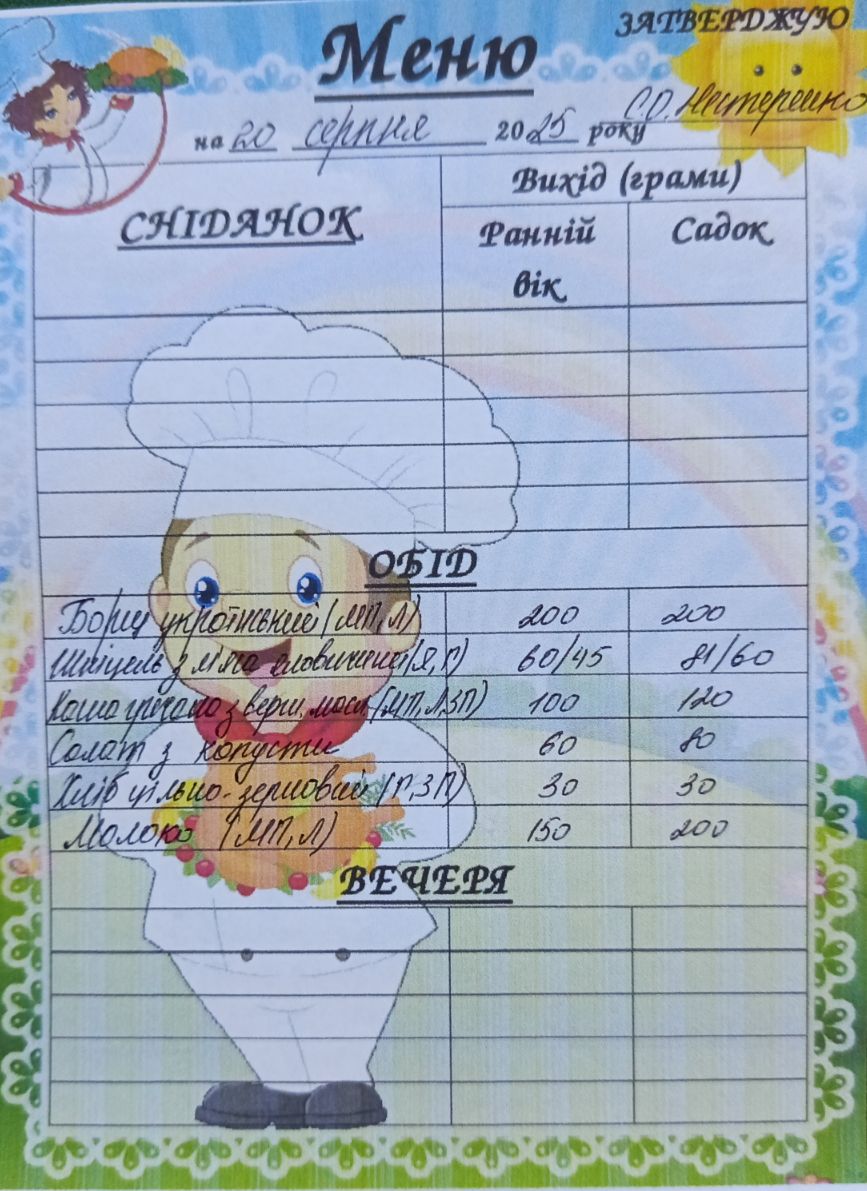 ЗАТВЕРДЖУЮ
Меню
С.О. Нестеренко
на 20 серпня 2025 року
СНІДАНОК
Вихід (грами)
Ранній вік
Садок
ОБІД
Борщ український (МП, Л) 200 200
Шніцель з м'яса яловичини (Я, Г) 60/45 81/60
Каша з верш. масл. (МП, Л, ЗП) 100 120
Салат з капусти 60 80
Хліб цільно-зерновий (Г, ЗП) 30 30
Молоко (МП, Л) 150 200
ВЕЧЕРЯ